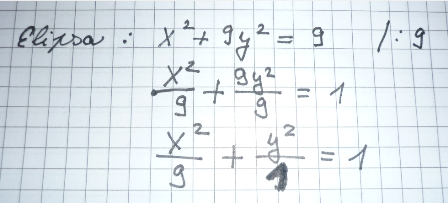 Elipsa : x² + 9y² = 9 /: 9
x²/9 + 9y²/9 = 1
x²/9 + y²/1 = 1